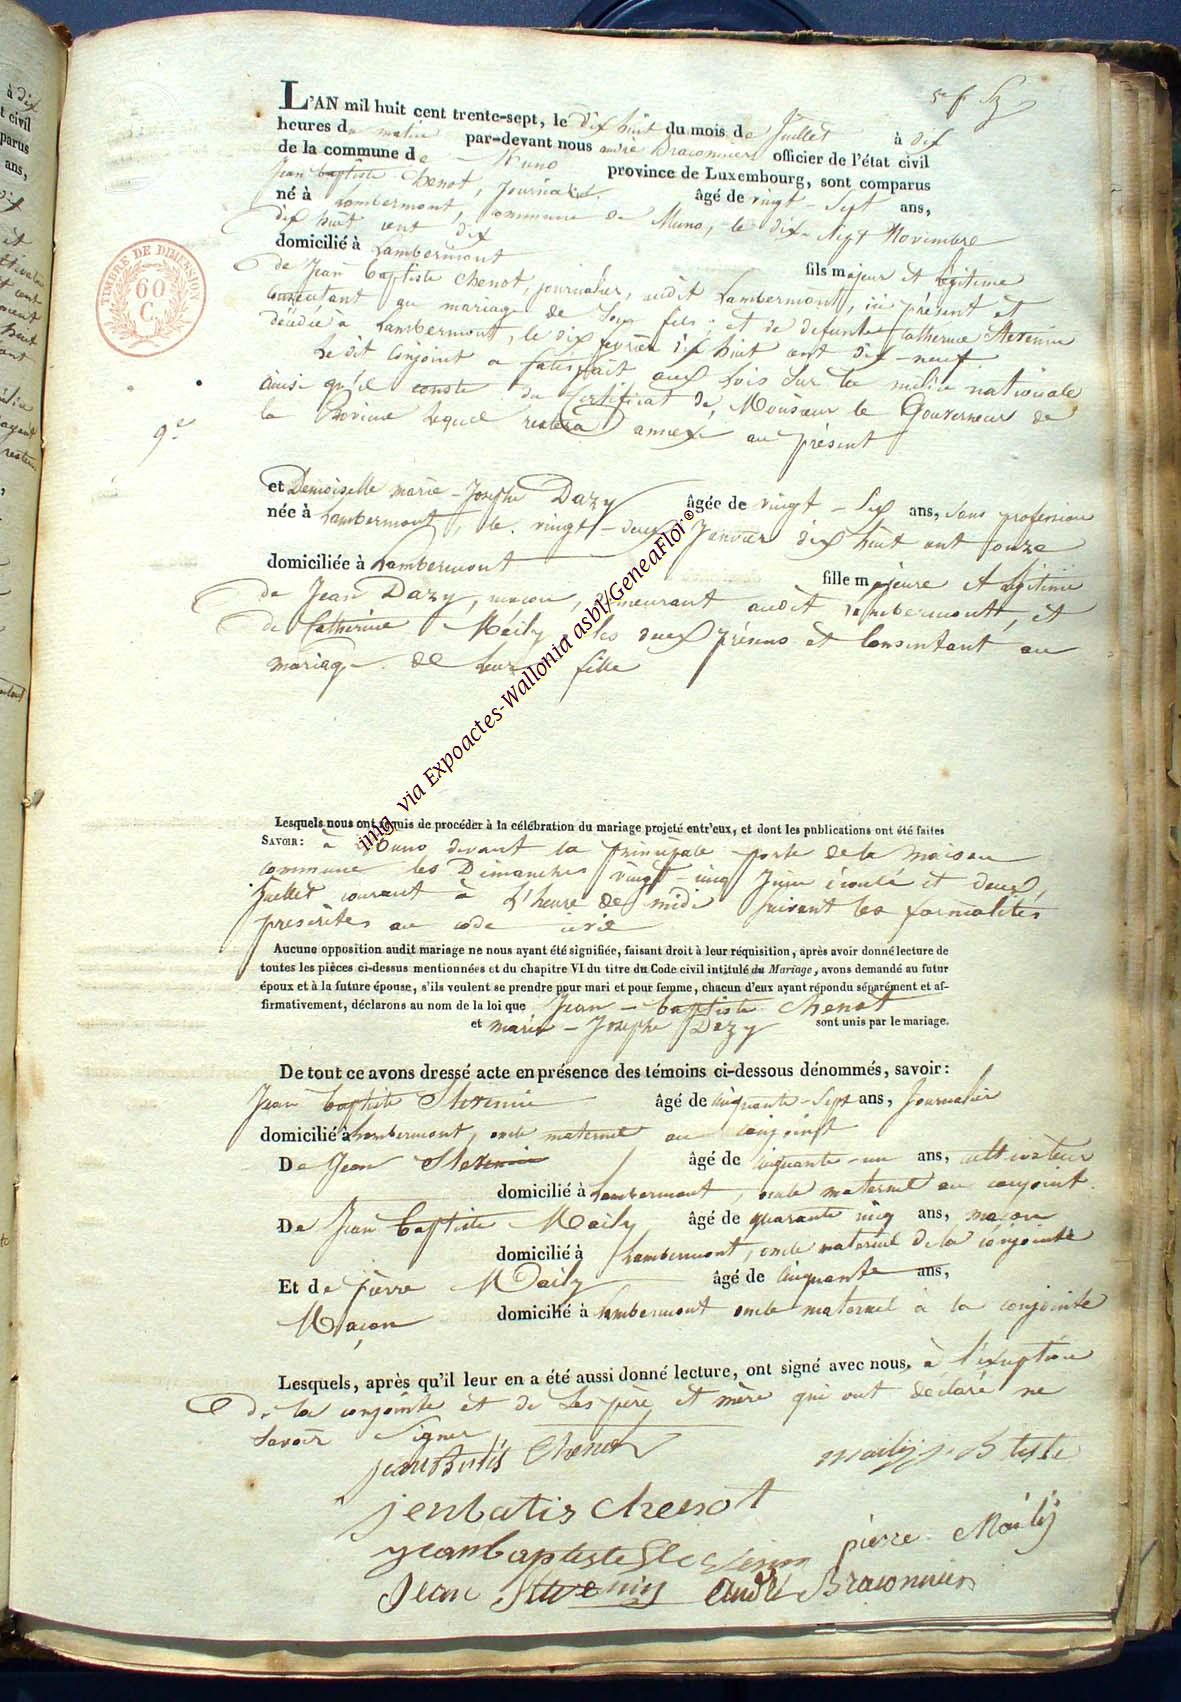 5e f. Sz
L'AN mil huit cent trente-sept, le dix huit du mois de Juillet à dix
heures du matin par-devant nous andré Braconnier officier de l'état civil
de la commune de Muno province de Luxembourg, sont comparus
Jean baptiste Chenot, Journalier. âgé de vingt-Sept ans,
né à Lambermont, commune de Muno, le dix-Sept Novembre
dix huit cent dix
domicilié à Lambermont fils majeur et légitime
de Jean baptiste Chenot, journalier, audit Lambermont, ici présent et
Consentant au mariage de Son fils; et de defunte Catherine Stevenin
décédée à Lambermont, le dix fevrier dix huit cent dix-neuf.
Le dit Conjoint a satisfait aux Lois Sur la milice nationale
ainsi qu'il conste du Certificat de Monsieur le Gouverneur de
la Province lequel restera annexé au présent
9e
et Demoiselle marie-Josephe Dazy âgée de vingt-Six ans, Sans profession
née à Lambermont, le vingt-deux Janvier dix huit cent onze
domiciliée à Lambermont fille majeure et légitime
de Jean Dazy, maçon, demeurant audit Lambermont, et
de Catherine Maily, les deux présens et Consentant au
mariage de leur fille
Lesquels nous ont requis de procéder à la célébration du mariage projeté entr'eux, et dont les publications ont été faites
SAVOIR: à Muno devant la principale porte de la maison
commune les Dimanches vingt-cinq Juin écoulé et deux
Juillet courant à L'heure de midi suivant les formalités
prescrites au code civil
Aucune opposition audit mariage ne nous ayant été signifiée, faisant droit à leur réquisition, après avoir donné lecture de
toutes les pièces ci-dessus mentionnées et du chapitre VI du titre du Code civil intitulé du Mariage, avons demandé au futur
époux et à la future épouse, s'ils veulent se prendre pour mari et pour femme, chacun d'eux ayant répondu séparément et af-
firmativement, déclarons au nom de la loi que Jean-baptiste Chenot
et marie-Josephe Dazy sont unis par le mariage.
De tout ce avons dressé acte en présence des témoins ci-dessous dénommés, savoir:
Jean baptiste Stevenin âgé de Cinquante-Sept ans, Journalier
domicilié à Lambermont, oncle maternel au conjoint
De Jean Stevenin âgé de Cinquante-un ans, cultivateur
domicilié à Lambermont, oncle maternel au conjoint.
De Jean baptiste Maily âgé de quarante cinq ans, maçon
domicilié à Lambermont, oncle maternel de la conjointe
Et de Pierre Maily âgé de Cinquante ans,
Maçon domicilié à Lambermont oncle maternel à la conjointe
Lesquels, après qu'il leur en a été aussi donné lecture, ont signé avec nous, à l'exception
de la conjointe et de Ses père et mère qui ont déclaré ne
Savoir Signer
jean Batis Chenot
mailij j. Btiste
jenbatis chenot
jeanbaptiste Stevenin
pierre Mailij
Jean Stevenin
andré Braconnier
TIMBRE DE DIMENSION
60
C.
img via Expoactes-Wallonia asbl/GeneaFlor®